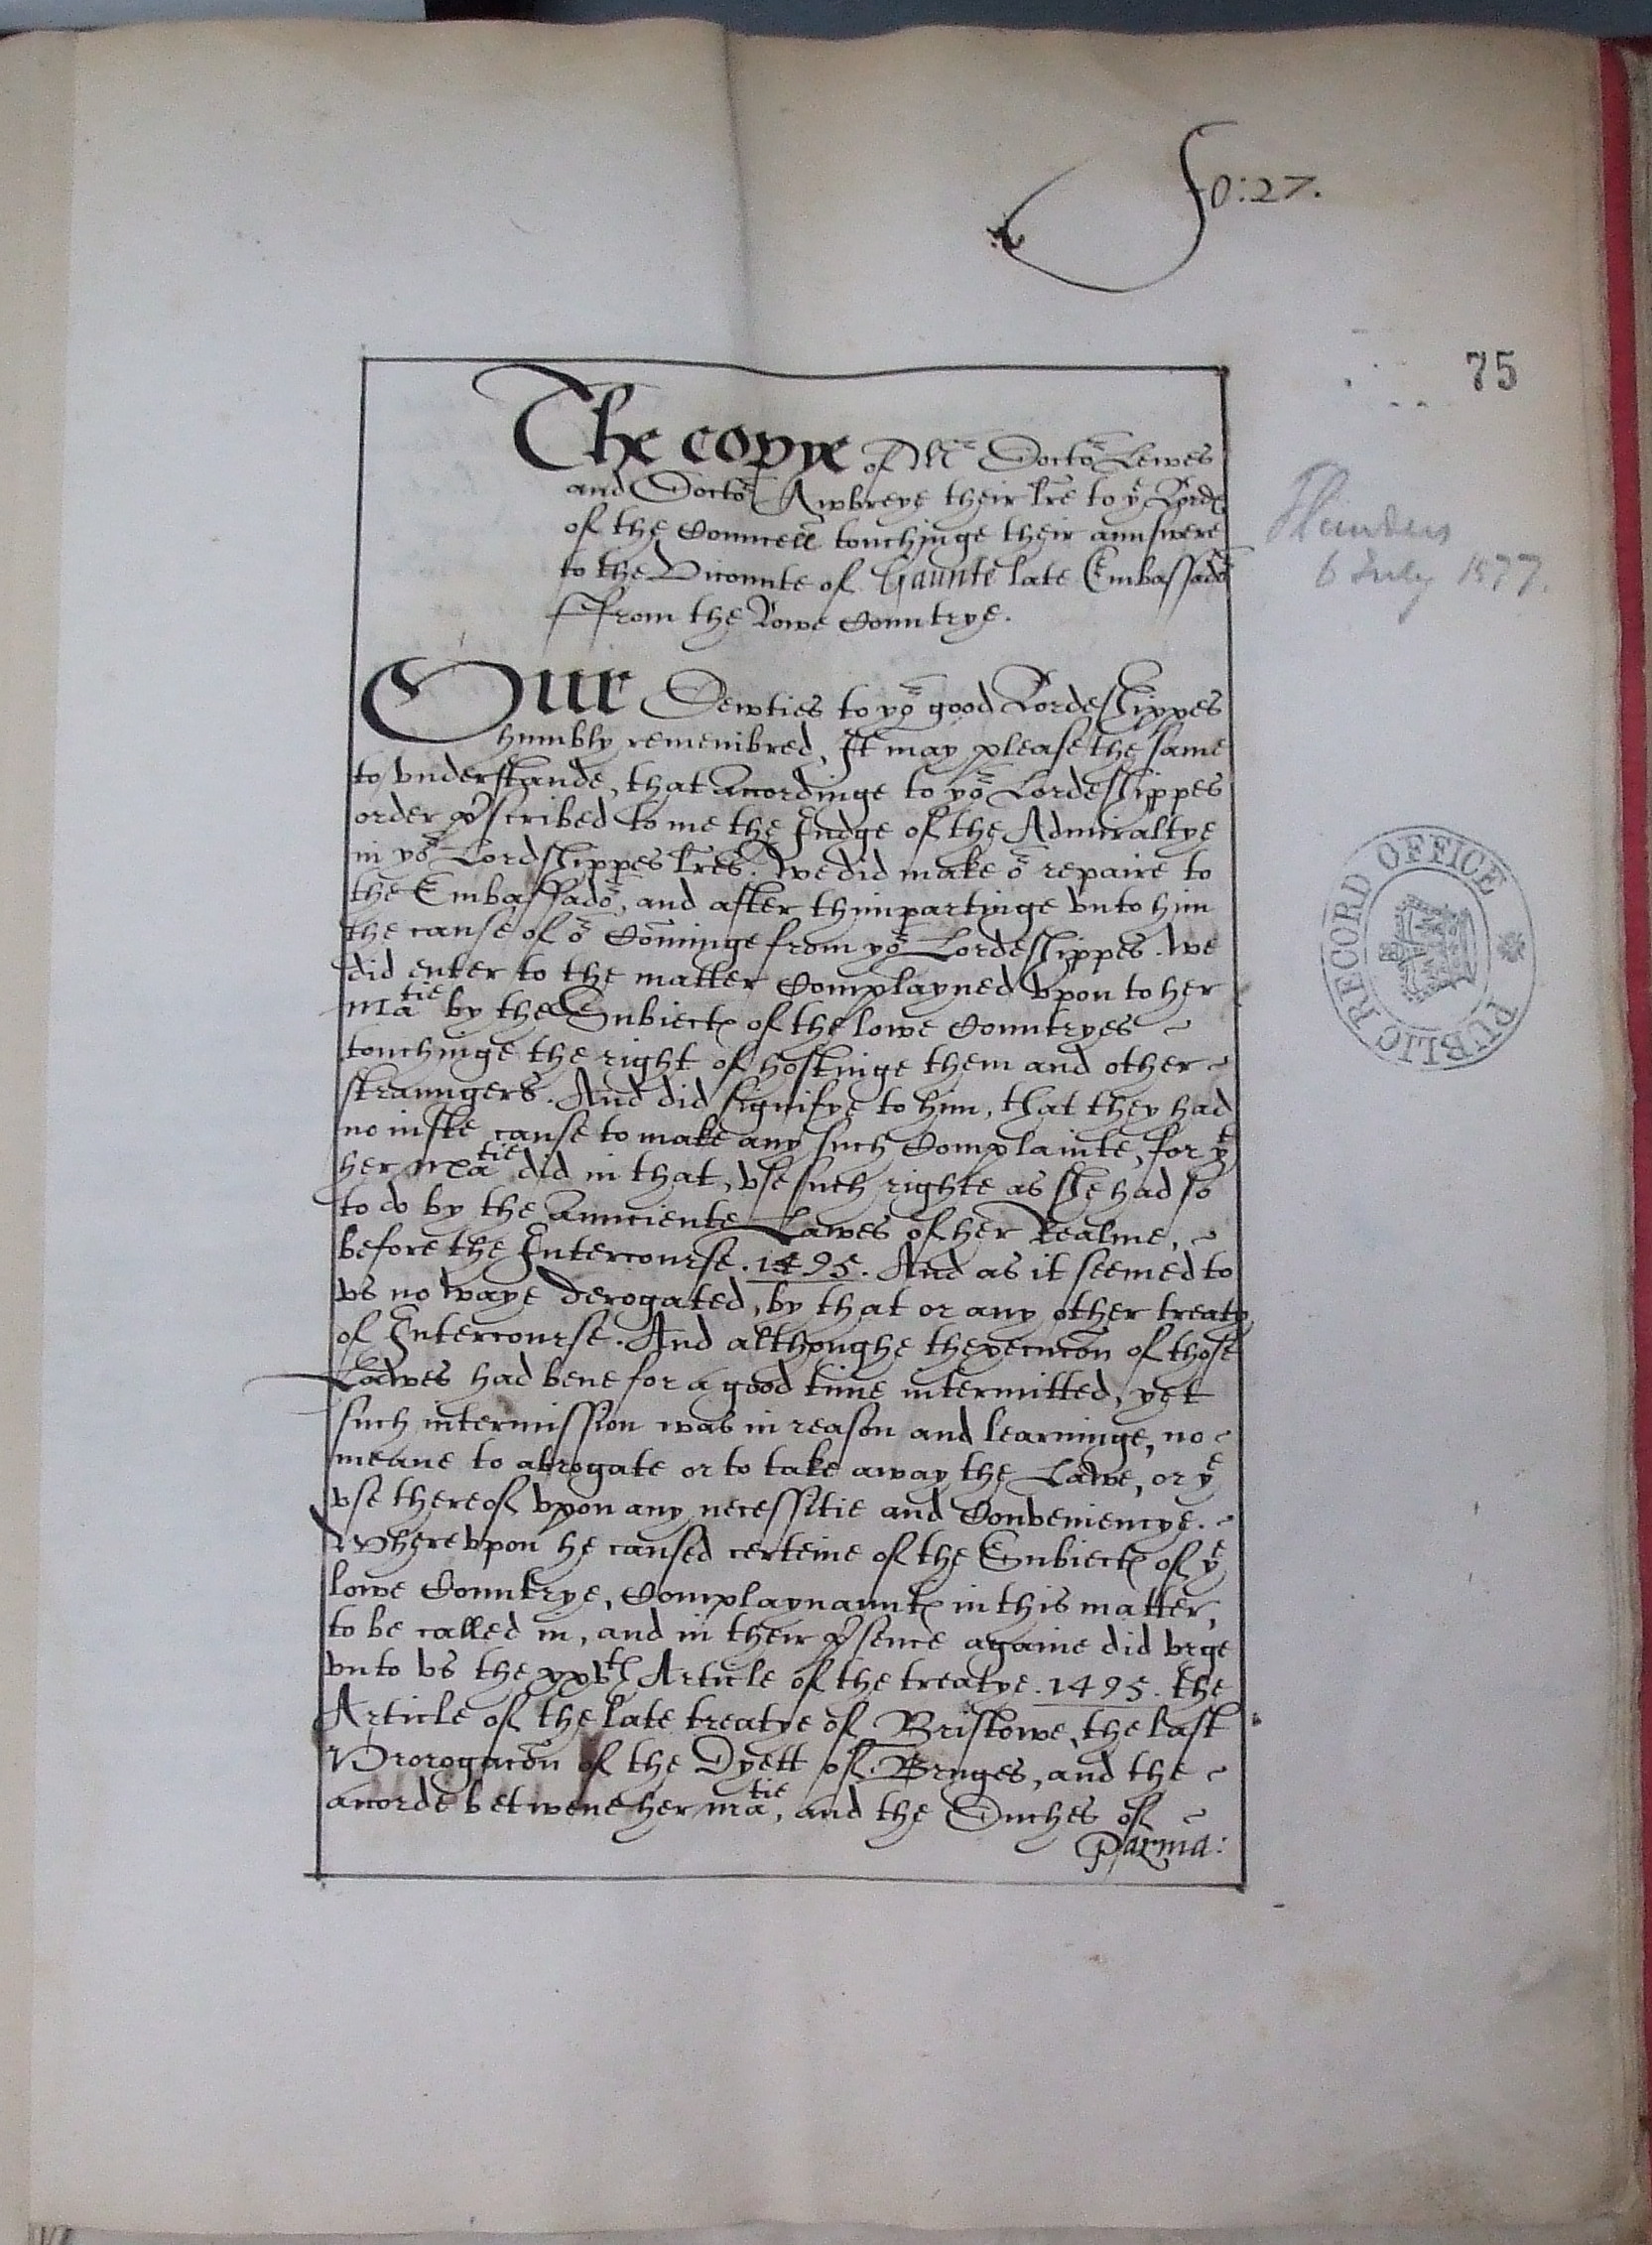 fo:27.
75
The copye of Mr Docto^r Lewes
and Docto^r Awbreye their lre to y^e Lord℮
of the Councell touchinge their aunswere
to the Vicounte of Gaunte late Embassado^r
ffrom the Lowe Countrye.
Flanders
6 July 1577.
Our Dewties to yo^r good Lordeshippes
humbly remembred, It may please the same
to vnderstande, that accordinge to yo^r Lordeshippes
order p̱scribed to me the Judge of the Admiraltye
in yo^r Lordshippes lres. We did make o^r repaire to
the Embassado^r, and after thimpartinge vnto him
the cause of o^r Cominge from yo^r Lordeshippes. we
did enter to the matter Complayned vpon to her
ma^tie by the Subiect℮ of the lowe Countryes
touchinge the right of hostinge them and other
straungers. And did signifye to him, that they had
no iuste cause to make any such Complainte, for y^t
her ma^tie did in that, vse such righte as she had so
to do by the aunciente Lawes of her Realme,
before the Intercourse. 1495. And as it seemed to
vs no waye derogated, by that or any other treaty
of Intercourse. And althoughe thexecucon of those
Lawes had bene for a good time intermitted, yet
such intermission was in reason and learninge, no
meane to abrogate or to take away the Lawe, or y^e
vse thereof vpon any necessitie and Conveniencye.
Wherevpon he caused certeine of the Subiect℮ of y^e
lowe Countrye, Complaynaunt℮ in this matter,
to be called in, and in their p̱sence againe did vrge
vnto vs the xxv^th Article of the treatye. 1495. the
Article of the late treatye of Bristowe, the last
Prorogacon of the Dyett of Bruges, and the
accorde betwene her ma^tie, and the Duches of
Parma:
PUBLIC RECORD OFFICE